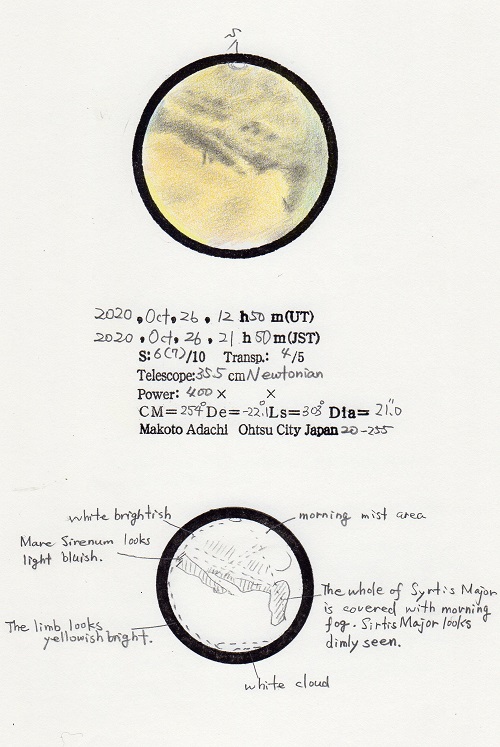 S
2020, Oct, 26, 12 h 50 m(UT)
2020, Oct, 26, 21 h 50 m(JST)
S: 6(7)/10 Transp.: 4/5
Telescope: 35.5 cm Newtonian
Power: 400 × ×
CM= 254° De= -22.1° Ls= 308° Dia= 21.″0
Makoto Adachi Ohtsu City Japan 20-255
white brightish
morning mist area
Mare Sirenum looks
light bluish.
The whole of Syrtis Major
is covered with morning
fog. Sirtis Major looks
dimly seen.
The limb looks
yellowish bright.
white cloud